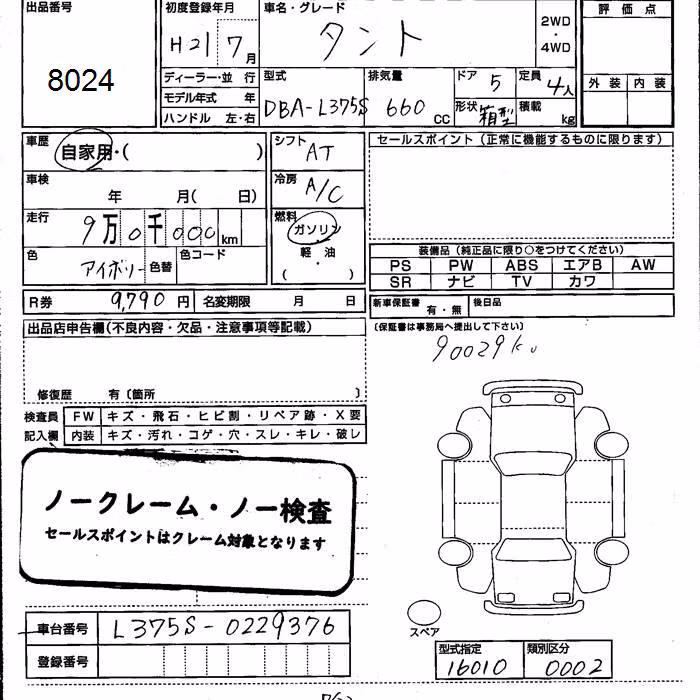 出品番号
8024
初度登録年月
H21 7月
車名・グレード
タント
2WD
・
4WD
評価点
外装 内装
ディーラー・並 行
モデル年式 年
ハンドル 左・右
型式
DBA-L375S
排気量
660 CC
ドア 5
形状 箱型
定員 4人
積載 kg
車歴
自家用・( )
車検
年 月( 日)
走行
9万0千000km
色
アイボリー
色替
色コード
シフト
AT
冷房
A/C
燃料
ガソリン
・
軽・油
・
( )
セールスポイント(正常に機能するものに限ります)
装備品(純正品に限り○をつけてください)
PS PW ABS エアB AW
SR ナビ TV カワ
R券 9,790 円 名変期限 月 日
新車保証書 有・無 後日品
(保証書は事務局へ提出して下さい)
出品店申告欄(不良内容・欠品・注意事項等記載)
修復歴 有〔箇所 〕
90029
検査員
記入欄
FW キズ・飛石・ヒビ割・リペア跡・X要
内装 キズ・汚れ・コゲ・穴・スレ・キレ・破レ
ノークレーム・ノー検査
セールスポイントはクレーム対象となります
車台番号 L375S-0229376
登録番号
スペア
型式指定 類別区分
16010 0002